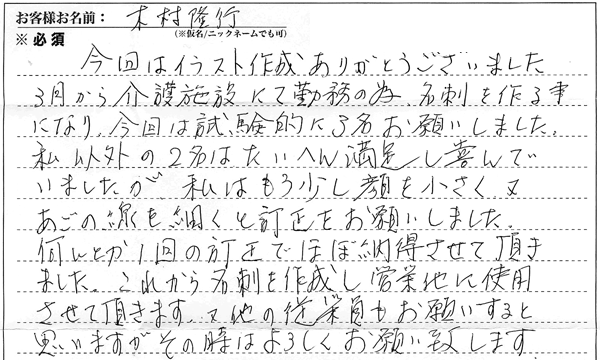 お客様お名前： 木村隆行
※必須 (※仮名/ニックネームでも可)
今回はイラスト作成ありがとうございました
3月から介護施設にて勤務の為、名刺を作る事
になり、今回は試験的に3名お願いしました。
私以外の2名はたいへん満足し喜んで
いましたが、私はもう少し顔を小さく又
あごの線を細くと訂正をお願いしました。
何んとか1回の訂正でほぼ納得させて頂き
ました。これから名刺を作成し営業他に使用
させて頂きます。又他の従業員もお願いすると
思いますがその時はよろしくお願い致します